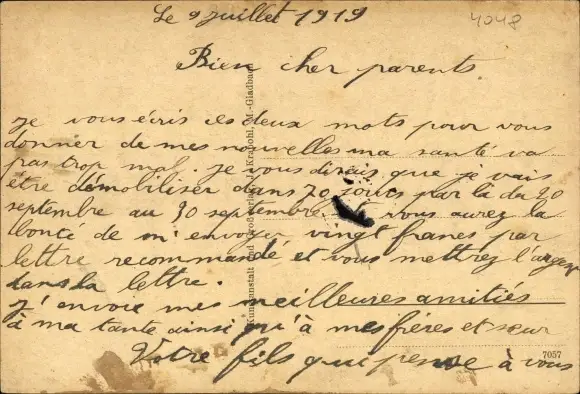 Le 9 juillet 1919
4048
Bien cher parents.
je vous écris ces deux mots pour vous
donner de mes nouvelles ma santé va
pas trop mal. je vous dirais que je vais
être démobiliser dans 70 jours par là du 20
septembre au 30 septembre et vous aurez la
bonté de m'envoyer vingt francs par
lettre recommandé et vous mettrez l'argen
dans la lettre.
j'envoie mes meilleures amitiés
à ma tante ainsi qu'à mes frères et sœur
Votre fils qui pense à vous
7057
Kunstanstalt und Krapohl, M.-Gladbach